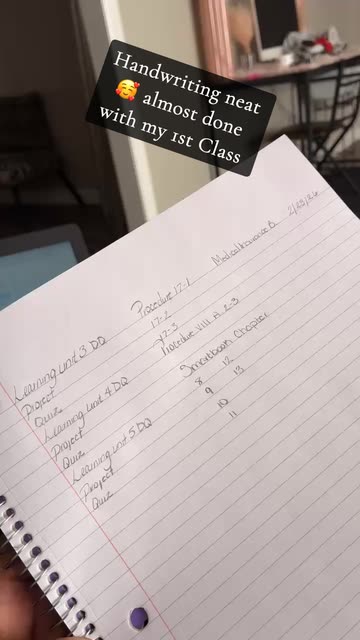 Handwriting neat
🥰 almost done
with my 1st Class
Medical Insurance B 2/22/26
Learning Unit 3 DQ
Project
Quiz
Learning Unit 4 DQ
Project
Quiz
Learning Unit 5 DQ
Project
Quiz
Procedure 17-1
17-2
17-3
Procedure VIII A 2-3
Smartbook Chapter
8 12
9 13
10
11